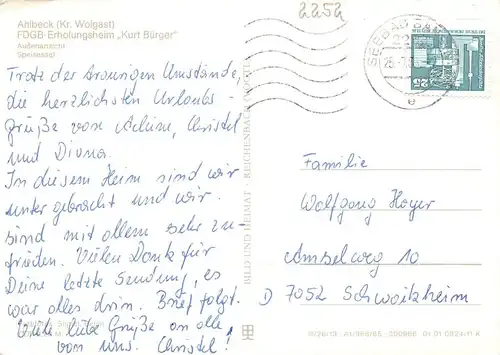 2252
Ahlbeck (Kr. Wolgast)
FDGB-Erholungsheim „Kurt Bürger"
Außenansicht
Speisesaal
Trotz der traurigen Umstände,
die herzlichsten Urlaubs-
grüße von Achim, Christel
und Diana.
In diesem Heim sind wir
untergebracht und wir
sind mit allem sehr zu-
frieden. Vielen Dank für
Deine letzte Sendung, es
war alles drin. Brief folgt.
Viele liebe Grüße an alle
von uns. Christel!
BILD UND HEIMAT REICHENBACH
SEEBAD
e
25
Familie
Wolfgang Hoyer
Amselweg 10
D 7052 Schwaikheim